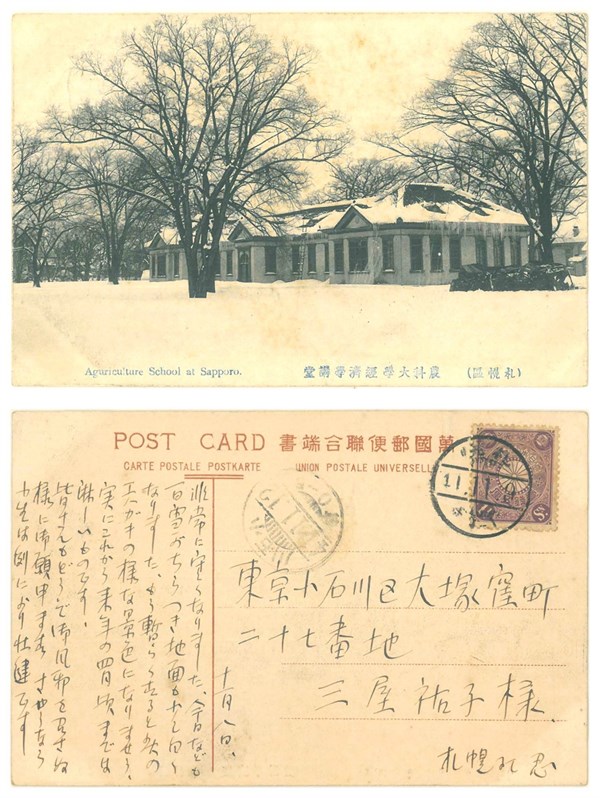 Aguriculture School at Sapporo.
(札幌區) 農科大學經濟學講堂
POST CARD 萬國郵便聯合端書
CARTE POSTALE POSTKARTE UNION POSTALE UNIVERSELLE
東京小石川区大塚窪町
二十七番地
三屋祐子様
札幌 忍
十一月八日、
非常に寒くなりました、今日なども
白雪がちらつき地面も少し白く
なりました、もう暫らく立ると此の
エハガキの様な景色になりませう、
実にこれから来年の四月頃までは
淋しいものです、
皆さんもどうぞ御風邪を召さぬ
様に御願申ます さやうなら
小生は例により壮健です